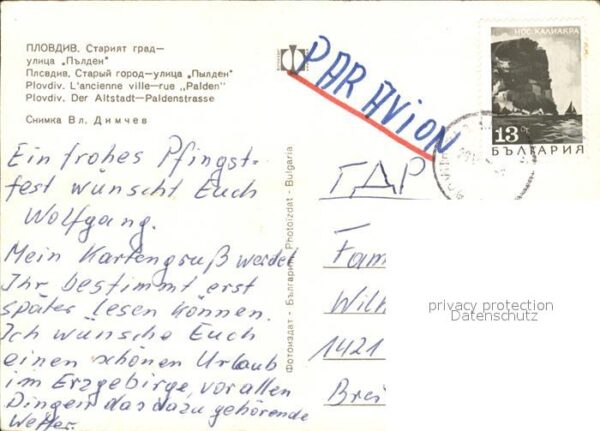 ПЛОВДИВ. Старият град—
улица „Пълден"
Пловдив. Старый город—улица „Пылден"
Plovdiv. L'ancienne ville—rue „Palden"
Plovdiv. Der Altstadt—Paldenstrasse
Снимка Вл. Димчев
Ein frohes Pfingst=
fest wünscht Euch
Wolfgang.
Mein Kartengruß werdet
Ihr bestimmt erst
später lesen können.
Ich wünsche Euch
einen schönen Urlaub
im Erzgebirge, vor allen
Dingen das dazu gehörende
Wetter.
Фотоиздат - България Photoizdat - Bulgaria
PAR AVION
НОС КАЛИАКРА
13 СТ.
БЪЛГАРИЯ
ГДР
Fam
Wilh
1421
Brei
privacy protection
Datenschutz